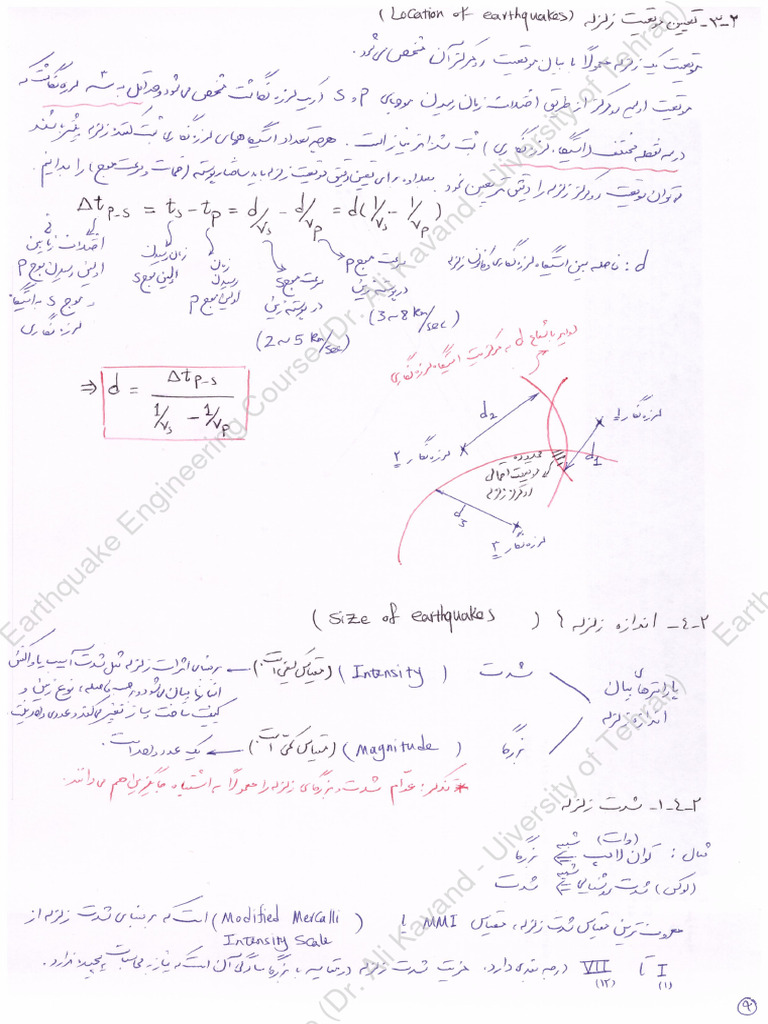 ۲-۳- تعیین موقعیت زلزله (Location of earthquakes)
موقعیت یک زلزله معمولاً با بیان موقعیت رومرکز آن مشخص می‌شود.
موقعیت اولیه رومرکز از طریق اختلاف زمان رسیدن موجهای P و S در یک لرزه نگاشت مشخص می‌شود و حداقل به سه لرزه نگاشت که
در سه نقطه مختلف (ایستگاه لرزه نگاری) ثبت شده‌اند نیاز است. هرچه تعداد ایستگاههای لرزه نگاری ثبت کننده زلزله بیشتر باشند
می‌توان موقعیت رومرکز زلزله را دقیق‌تر تعیین نمود. بعلاوه برای تعیین دقیق موقعیت زلزله باید ساختار پوسته (ضخامت و سرعت موج) را بدانیم.
Δt_{P-S} = t_s - t_p = d/v_s - d/v_p = d(1/v_s - 1/v_p)
اختلاف زمانی بین
اولین رسیدن موج P
و موج S به ایستگاه
لرزه نگاری
زمان رسیدن
اولین موج S
زمان
رسیدن
اولین موج P
سرعت موج S
در پوسته زمین
(2~5 km/sec)
سرعت موج P
در پوسته زمین
(3~8 km/sec)
d : فاصله بین ایستگاه لرزه نگاری و کانون زلزله
⇒ d = Δt_{P-S} / (1/v_s - 1/v_p)
دوایر با شعاع d به مرکزیت ایستگاه لرزه نگاری
d2
لرزه نگار ۱
لرزه نگار ۲
d1
محدوده
موقعیت احتمالی
رومرکز زلزله
d3
لرزه نگار ۳
۲-۴- اندازه زلزله (Size of earthquakes)
پارامترهای بیان
اندازه زلزله
شدت (Intensity) (مقیاس کیفی است.) ← بر مبنای اثرات زلزله مثل شدت آسیب یا واکنش
انسانها بیان می‌شود و بر حسب فاصله، نوع زمین و
کیفیت ساخت و ساز تغییر می‌کند و عددی واحد نیست.
بزرگا (Magnitude) (مقیاس کمّی است.) ← یک عدد واحد است.
* تذکر: عوام شدت و بزرگای زلزله را معمولاً به اشتباه جایگزین هم می‌دانند.
۲-۴-۱- شدت زلزله
مثال: توان لامپ (وات) شبیه ⇐ بزرگا
(لوکس) شدت روشنایی شبیه ⇐ شدت
معروفترین مقیاس شدت زلزله، مقیاس MMI یا (Modified Mercalli Intensity Scale) است که بر مبنای شدت زلزله از
I (۱) تا VII (۱۲) درجه بندی دارد. مزیت شدت زلزله در مقایسه با بزرگا سادگی آن است که نیاز به محاسبات پیچیده ندارد.
۹
Earthquake Engineering Course (Dr. Ali Kavand - Uiversity of Tehran)
Earthquake Engineering Course (Dr. Ali Kavand - Uiversity of Tehran)
Earth